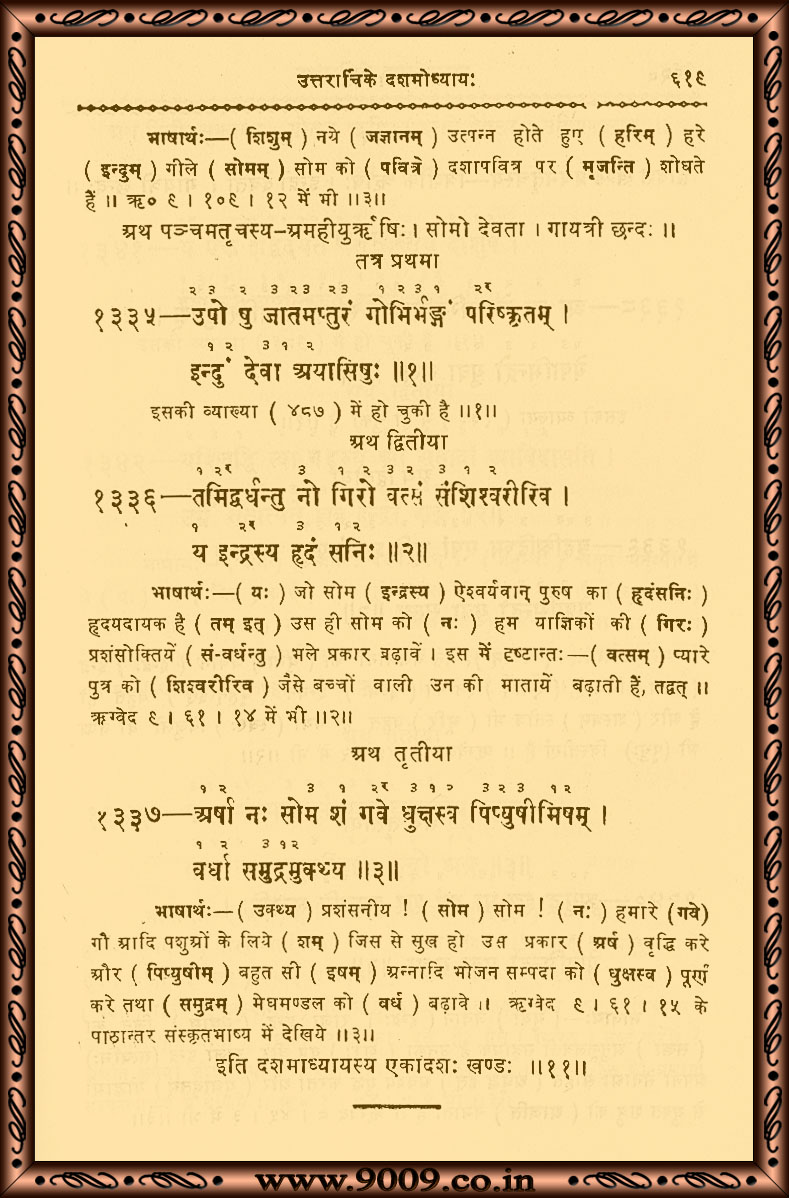 उत्तरार्चिके दशमोध्यायः ६१९
भाषार्थः—( शिशुम् ) नये ( जज्ञानम् ) उत्पन्न होते हुए ( हरिम् ) हरे
( इन्दुम् ) गीले ( सोमम् ) सोम को ( पवित्रे ) दशापवित्र पर ( मृजन्ति ) शोधते
हैं ॥ ऋ० ९ । १०९ । १२ में भी ॥३॥
अथ पञ्चमतृचस्य-अमहीयुर्ऋषिः । सोमो देवता । गायत्री छन्दः ॥
तत्र प्रथमा
२ ३ २ ३ २३ २३ १ २ ३ १ २र
१३३५—उपो षु जातमप्तुरं गोभिर्भङ्गं परिष्कृतम् ।
१ २ ३ १ २
इन्दुं देवा अयासिषुः ॥१॥
इसकी व्याख्या ( ४८७ ) में हो चुकी है ॥१॥
अथ द्वितीया
१ २र ३ १ २ ३ २ ३ १ २
१३३६—तमिद्वर्धन्तु नो गिरो वत्सं संशिश्वरीरिव ।
१ २र ३ १ २
य इन्द्रस्य हृदं सनिः ॥२॥
भाषार्थः—( यः ) जो सोम ( इन्द्रस्य ) ऐश्वर्यवान् पुरुष का ( हृदंसनिः )
हृदयदायक है ( तम् इत् ) उस ही सोम को ( नः ) हम याज्ञिकों की ( गिरः )
प्रशंसोक्तियें ( सं-वर्धन्तु ) भले प्रकार बढ़ावें । इस में दृष्टान्तः—( वत्सम् ) प्यारे
पुत्र को ( शिश्वरीरिव ) जैसे बच्चों वाली उन की मातायें बढ़ाती हैं, तद्वत् ॥
ऋग्वेद ९ । ६१ । १४ में भी ॥२॥
अथ तृतीया
१ २ ३ १ २र ३ १ २ ३ २ ३ १ २
१३३७—अर्षा नः सोम शं गवे धुक्षस्व पिप्युषीमिषम् ।
१ २ ३ १२
वर्धा समुद्रमुक्थ्य ॥३॥
भाषार्थः—( उक्थ्य ) प्रशंसनीय ! ( सोम ) सोम ! ( नः ) हमारे (गवे)
गौ आदि पशुओं के लिये ( शम् ) जिस से सुख हो उस प्रकार ( अर्ष ) वृद्धि करे
और ( पिप्युषीम् ) बहुत सी ( इषम् ) अन्नादि भोजन सम्पदा को ( धुक्षस्व ) पूर्ण
करे तथा ( समुद्रम् ) मेघमण्डल को ( वर्ध ) बढ़ावे ॥ ऋग्वेद ९ । ६१ । १५ के
पाठान्तर संस्कृतभाष्य में देखिये ॥३॥
इति दशमाध्यायस्य एकादशः खण्डः ॥११॥
www.9009.co.in